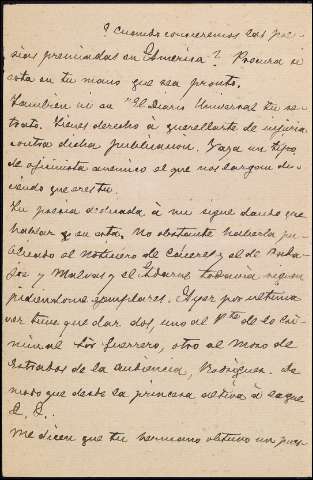 ¿ Cuando conoceremos las poe-
sias premiadas en America ? Procura si
esta en tu mano que sea pronto.
Tambien vi en "El Diario Universal tu re-
trato. Tienes derecho á querellarte de injuria
contra dicha publicacion. Vaya un tipo
de oficinista anemico el que nos largan di-
ciendo que eres tu.
Tu poesia dedicada á mi sigue dando que
hablar y en esta. No obstante haberla pu-
blicado el Noticiero de Cáceres y el de Bada-
joz y Malvas y el Adarve todavia siguen
pidiendome ejemplares. Ayer por ultima
vez tuve que dar dos, uno al Pte de lo Cri-
minal Sor Guerrero, otro al Mozo de
Estrados de la Audiencia, Rodriguez. De
modo que desde la princesa altiva á la que
&. &.
Me dicen que tu hermano obtuvo un pues-